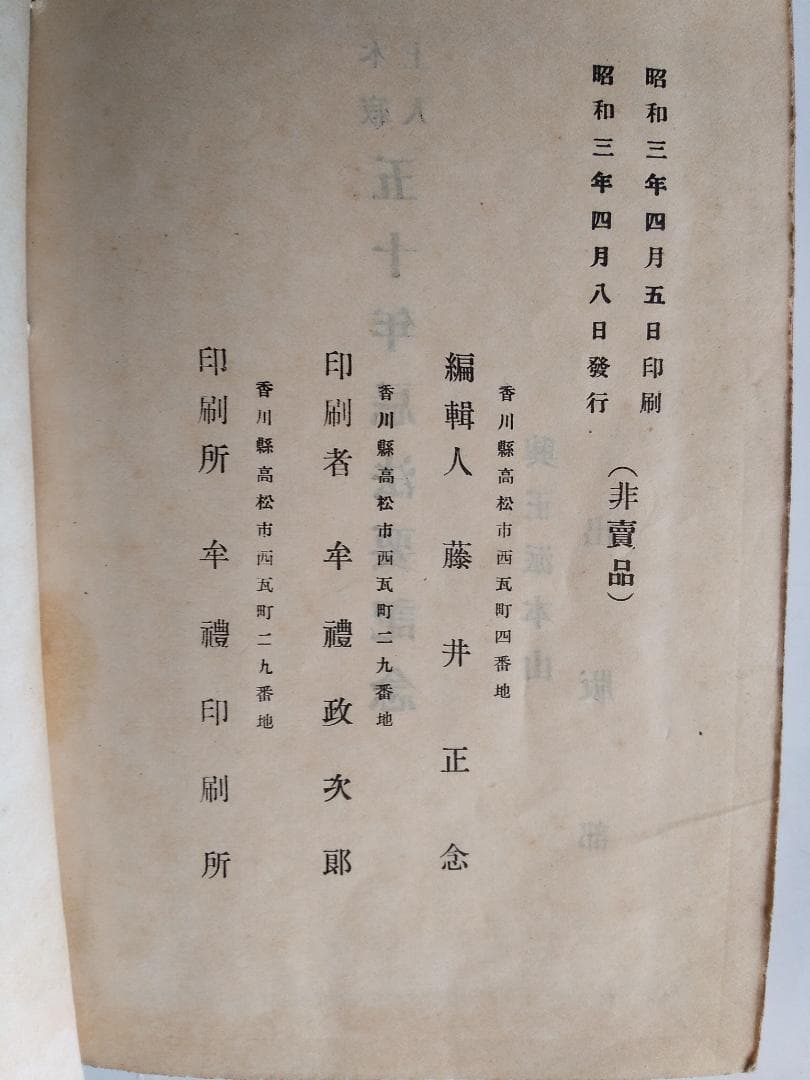 昭和三年四月五日印刷
昭和三年四月八日發行
(非賣品)
香川縣高松市西瓦町四番地
編輯人 藤井正念
香川縣高松市西瓦町二九番地
印刷者 牟禮政次郎
香川縣高松市西瓦町二九番地
印刷所 牟禮印刷所